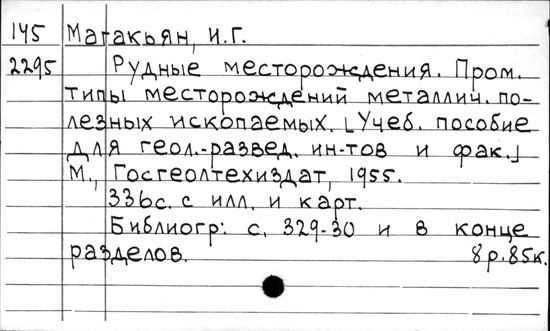 145 Магакьян, И.Г.
2295 Рудные месторождения. Пром.
типы месторождений металлич. по-
лезных ископаемых. [Учеб. пособие
для геол.-развед. ин-тов и фак.]
М., Госгеолтехиздат, 1955.
336с. с илл. и карт.
Библиогр: с. 329-30 и в конце
разделов. 8р.85к.